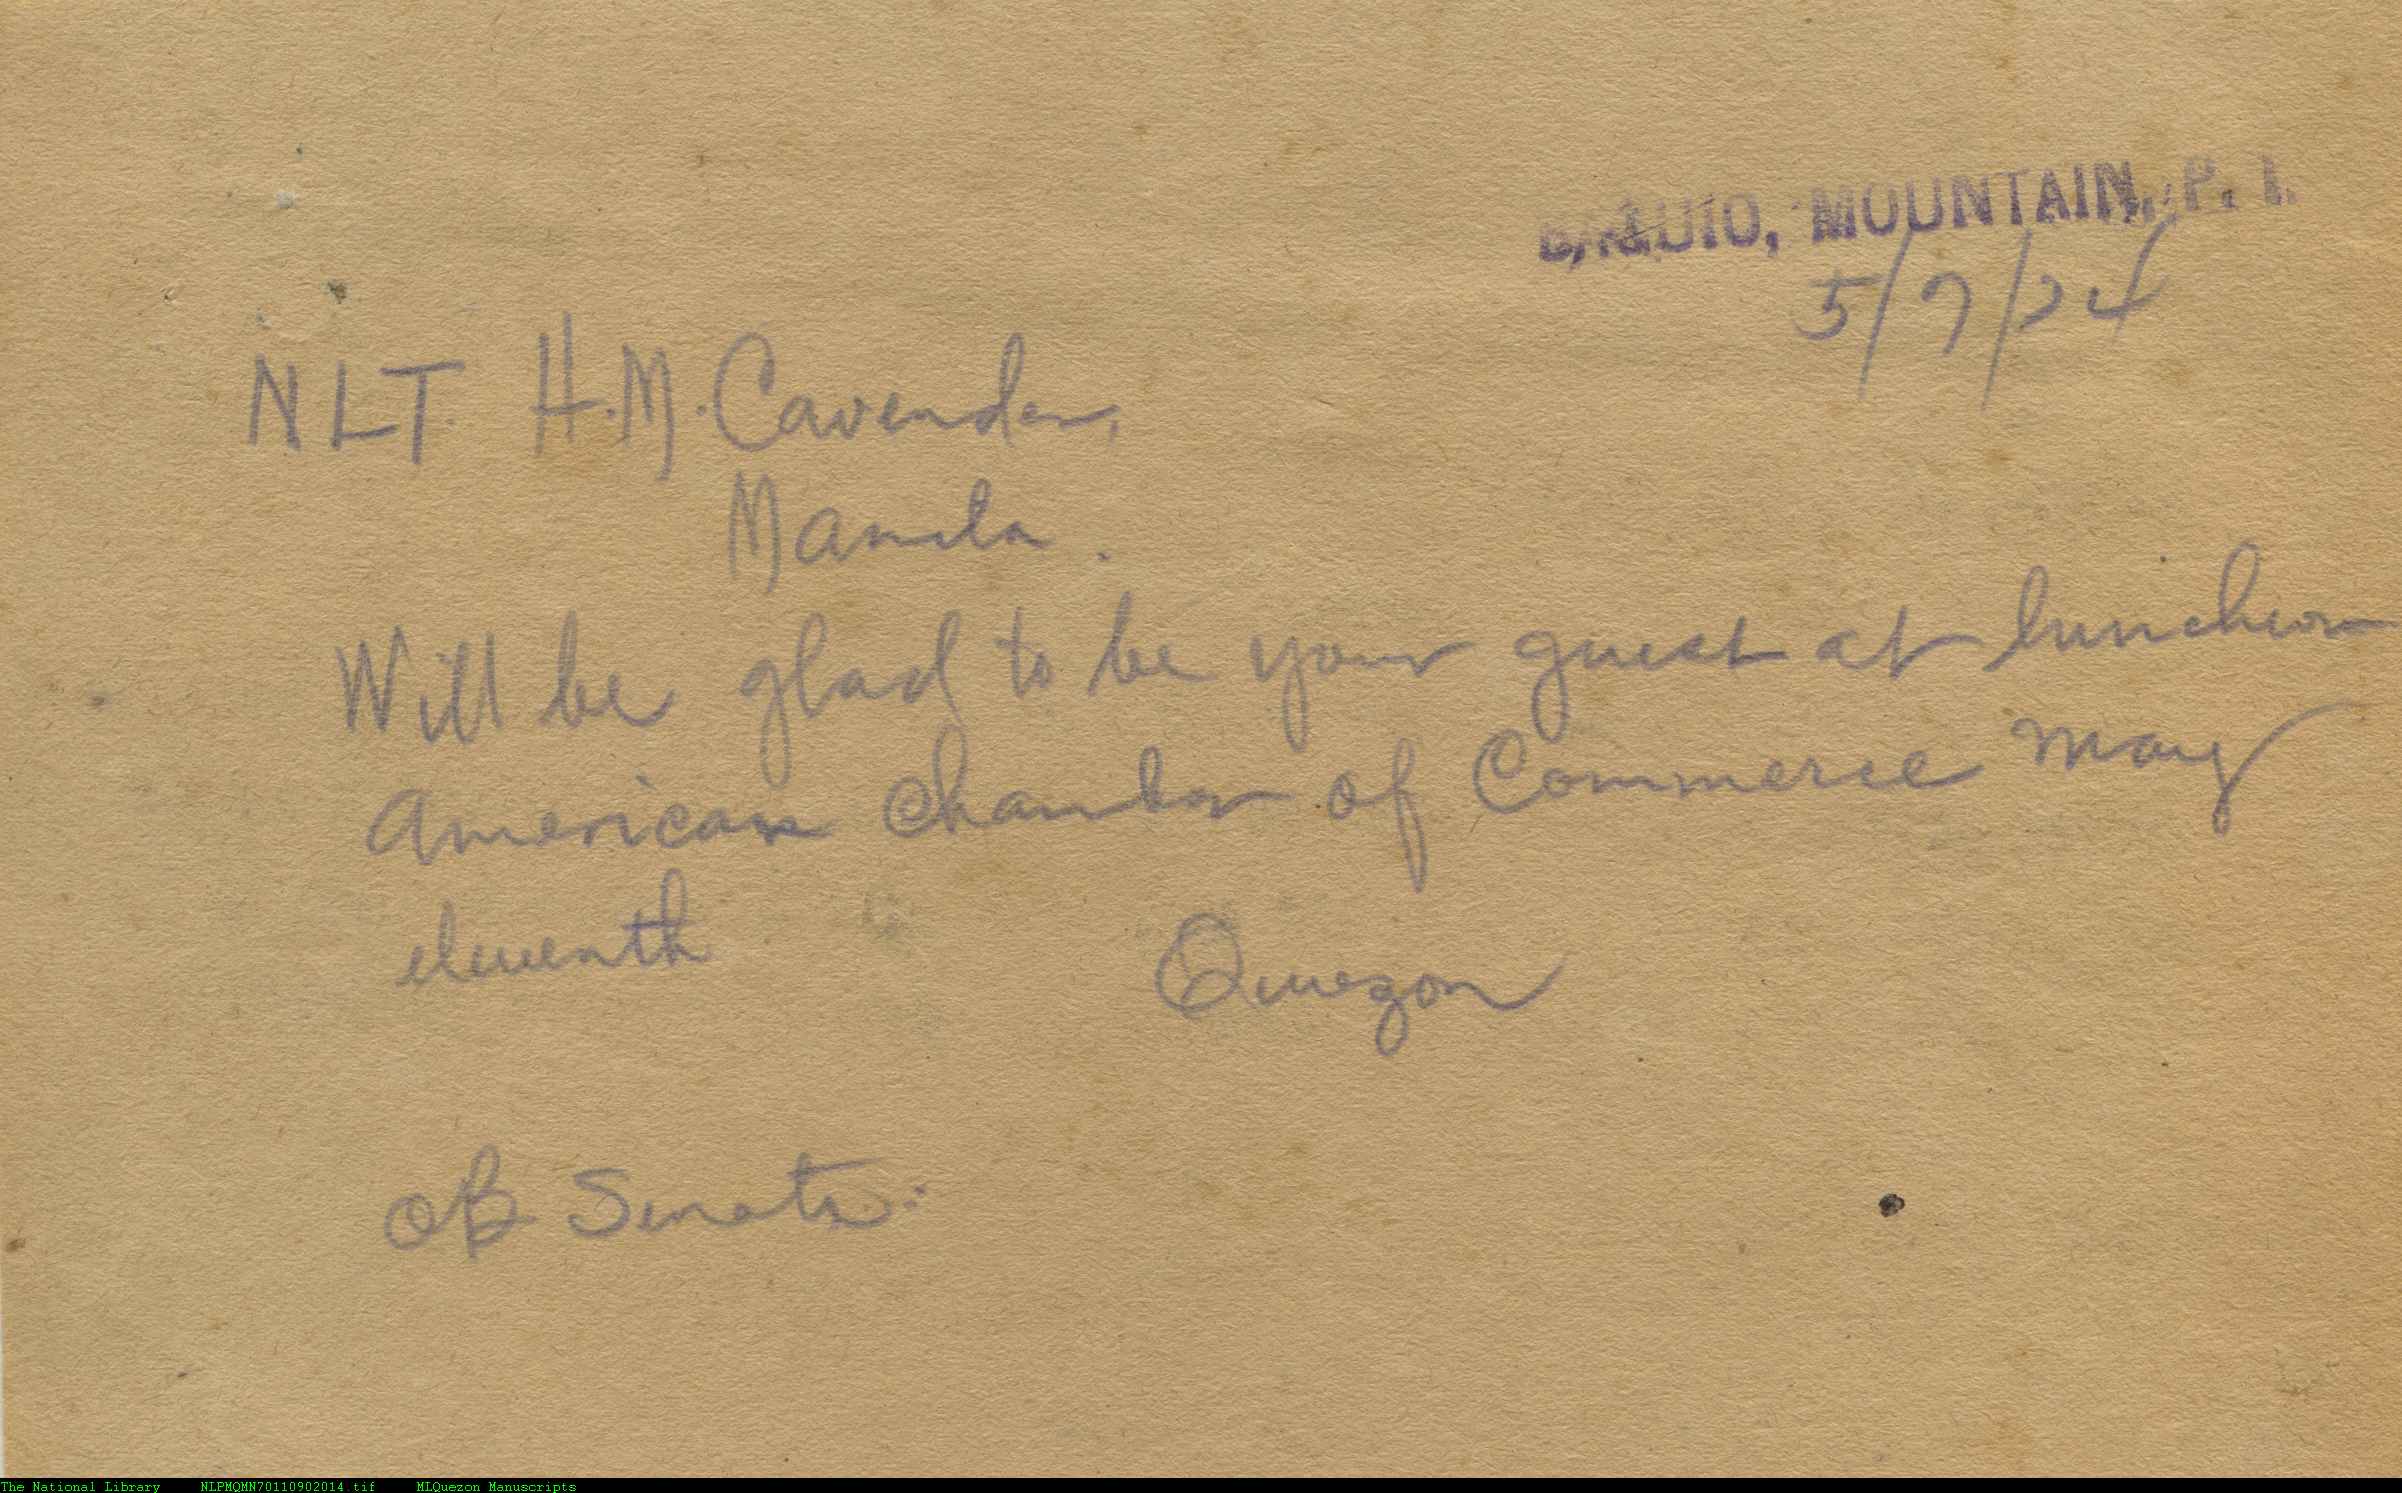 BAGUIO, MOUNTAIN, P. I.
5/7/24
NLT. H.M. Cavender,
Manila.
Will be glad to be your guest at luncheon
American Chamber of Commerce May
eleventh
Quezon
OB Senate.
The National Library NLPMQMN70110902014.tif MLQuezon Manuscripts